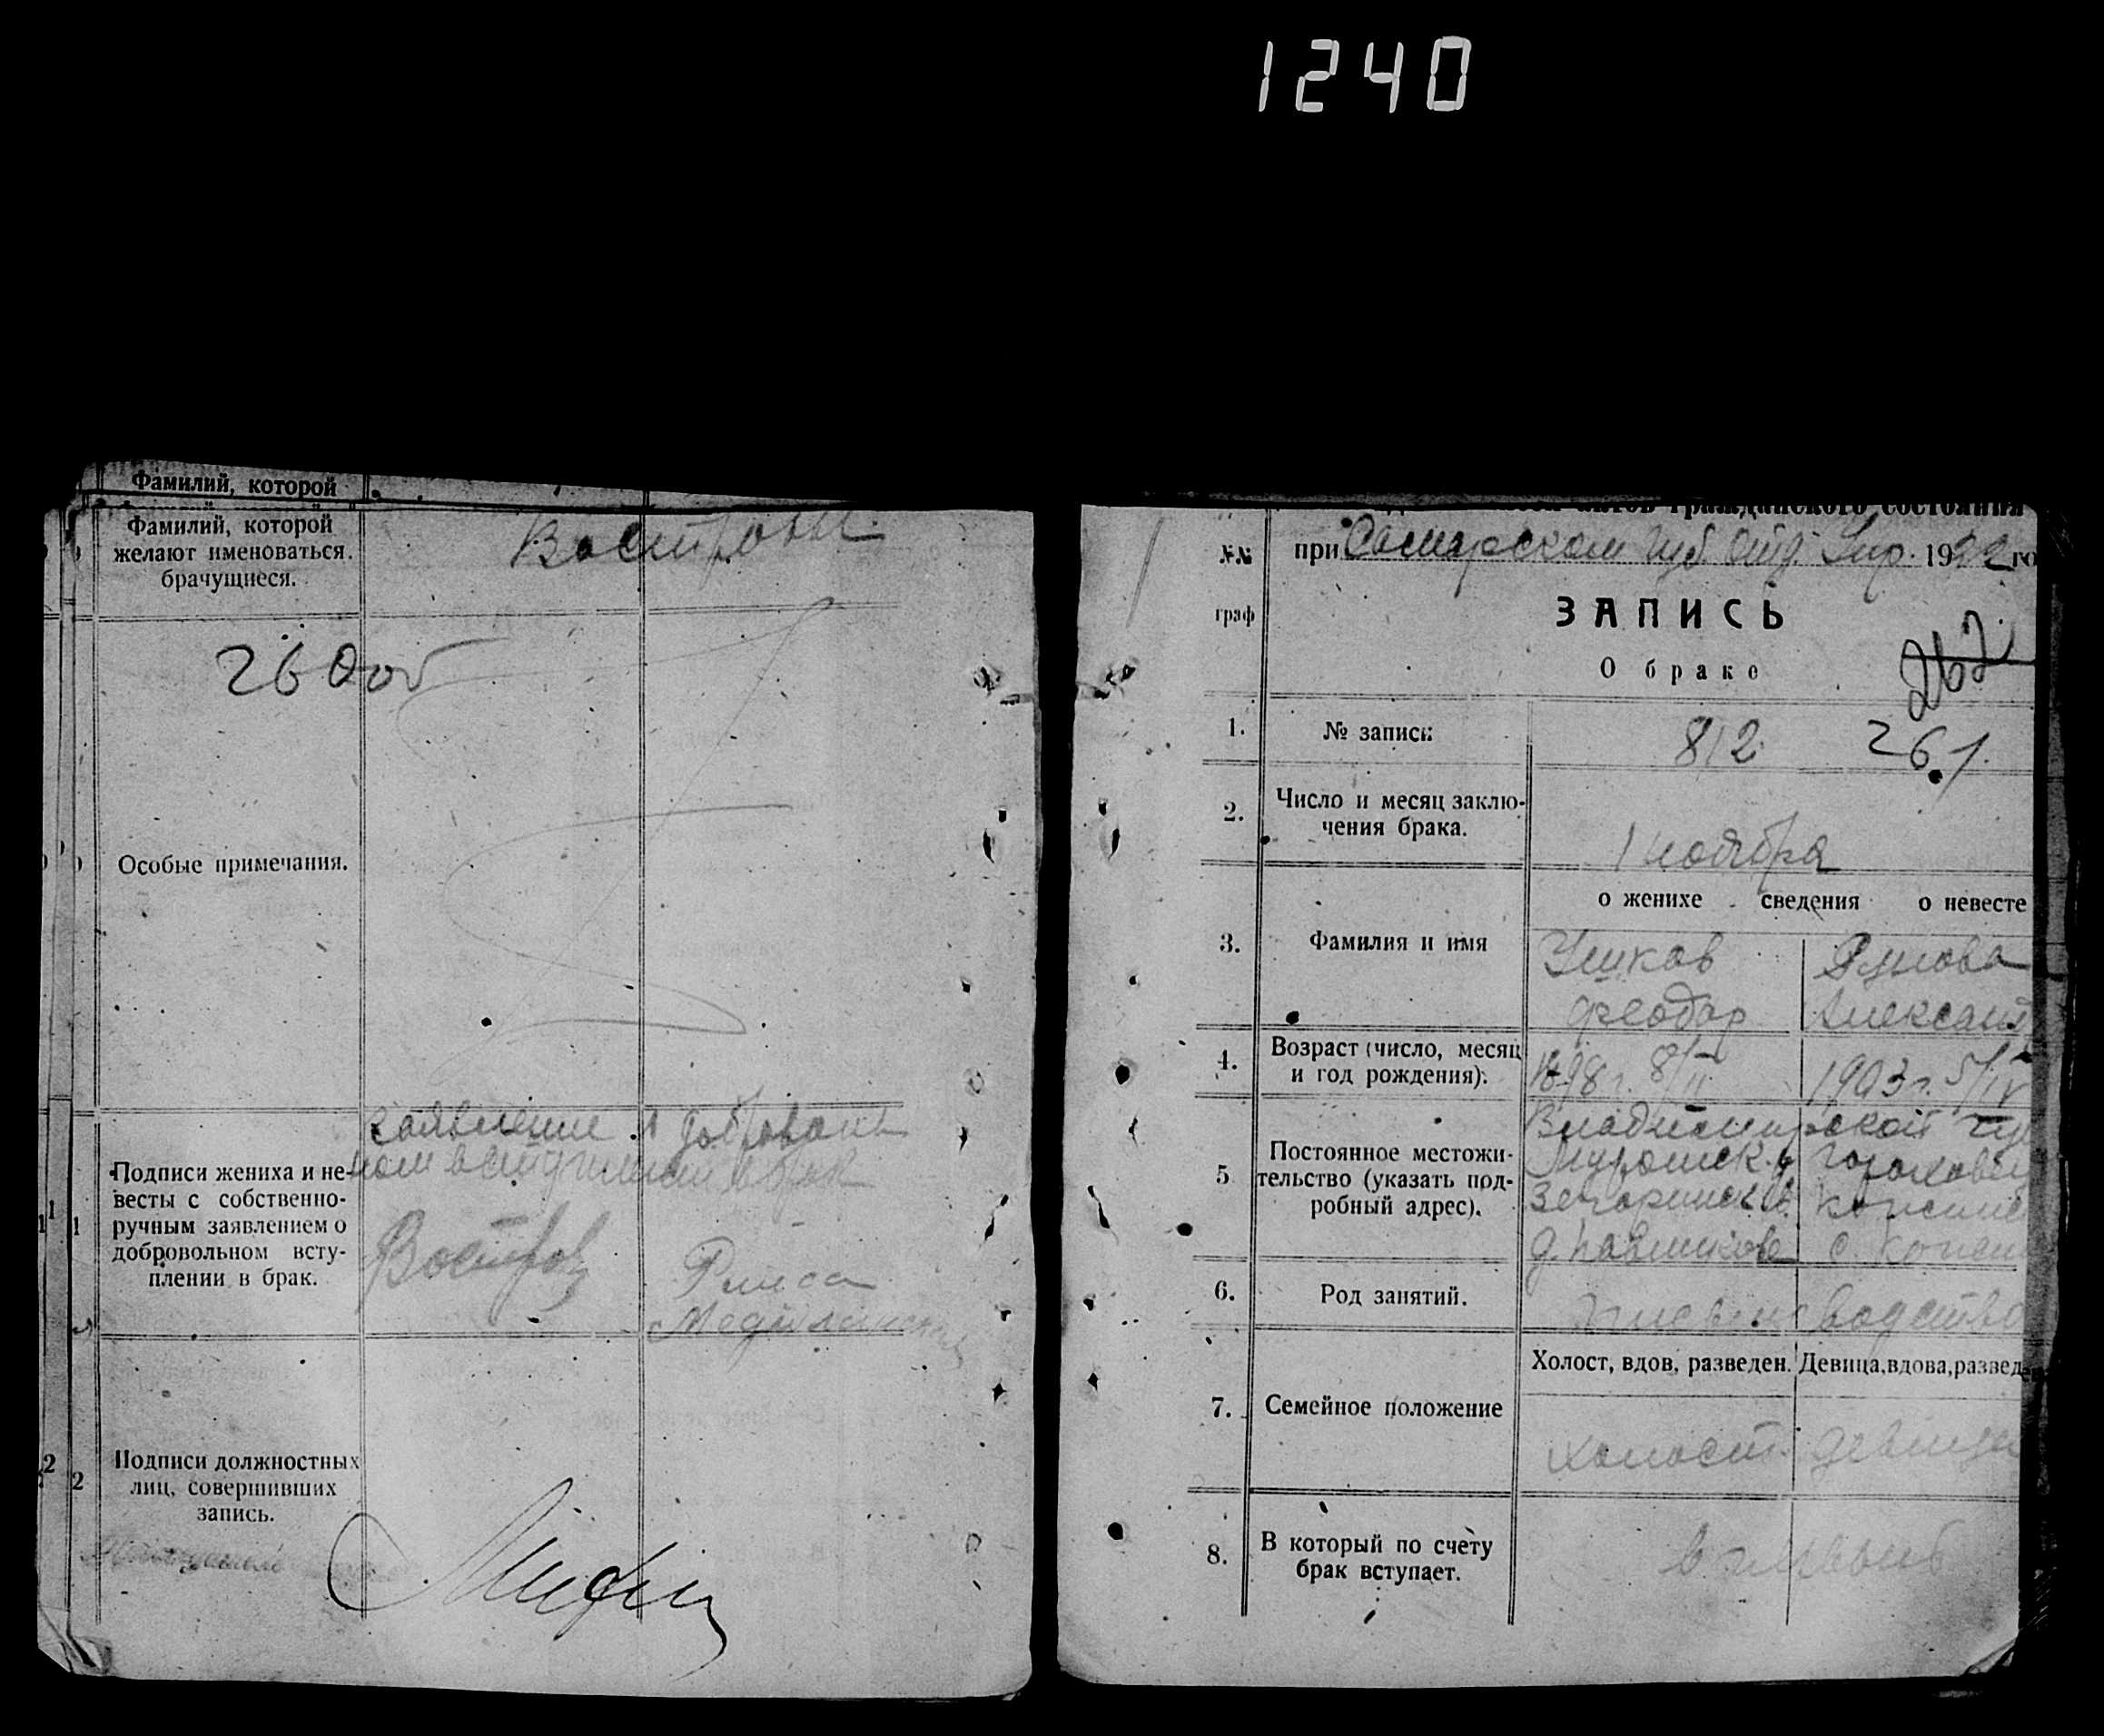 1240
Фамилий, которой
Фамилий, которой
желают именоваться
брачущиеся.
Востровы
260об
Особые примечания.
заявление о доброволь
ном вступлении в брак
Подписи жениха и не-
весты с собственно-
ручным заявлением о
добровольном всту-
плении в брак.
Востров
Раиса
1
1
Подписи должностных
лиц, совершивших
запись.
2
2
актов гражданского состояния
при Самарском Губ. Отд. Упр. 1922 го
№№
граф
ЗАПИСЬ
О браке
262
1.
№ записи
812
261
2.
Число и месяц заклю-
чения брака.
1 ноября
о женихе сведения о невесте
3.
Фамилия и имя
Ушков
Феодор
Александ
4.
Возраст (число, месяц
и год рождения).
1898 г. 8/II
1903 г. 5/IV
5
Постоянное местожи-
тельство (указать под-
робный адрес).
Владимирской губ
Муромск. у Гороховец
д. Павликово
6.
Род занятий.
водство
Холост, вдов, разведен. Девица, вдова, развед
7.
Семейное положение
холост. девица
8.
В который по счету
брак вступает.
в первый